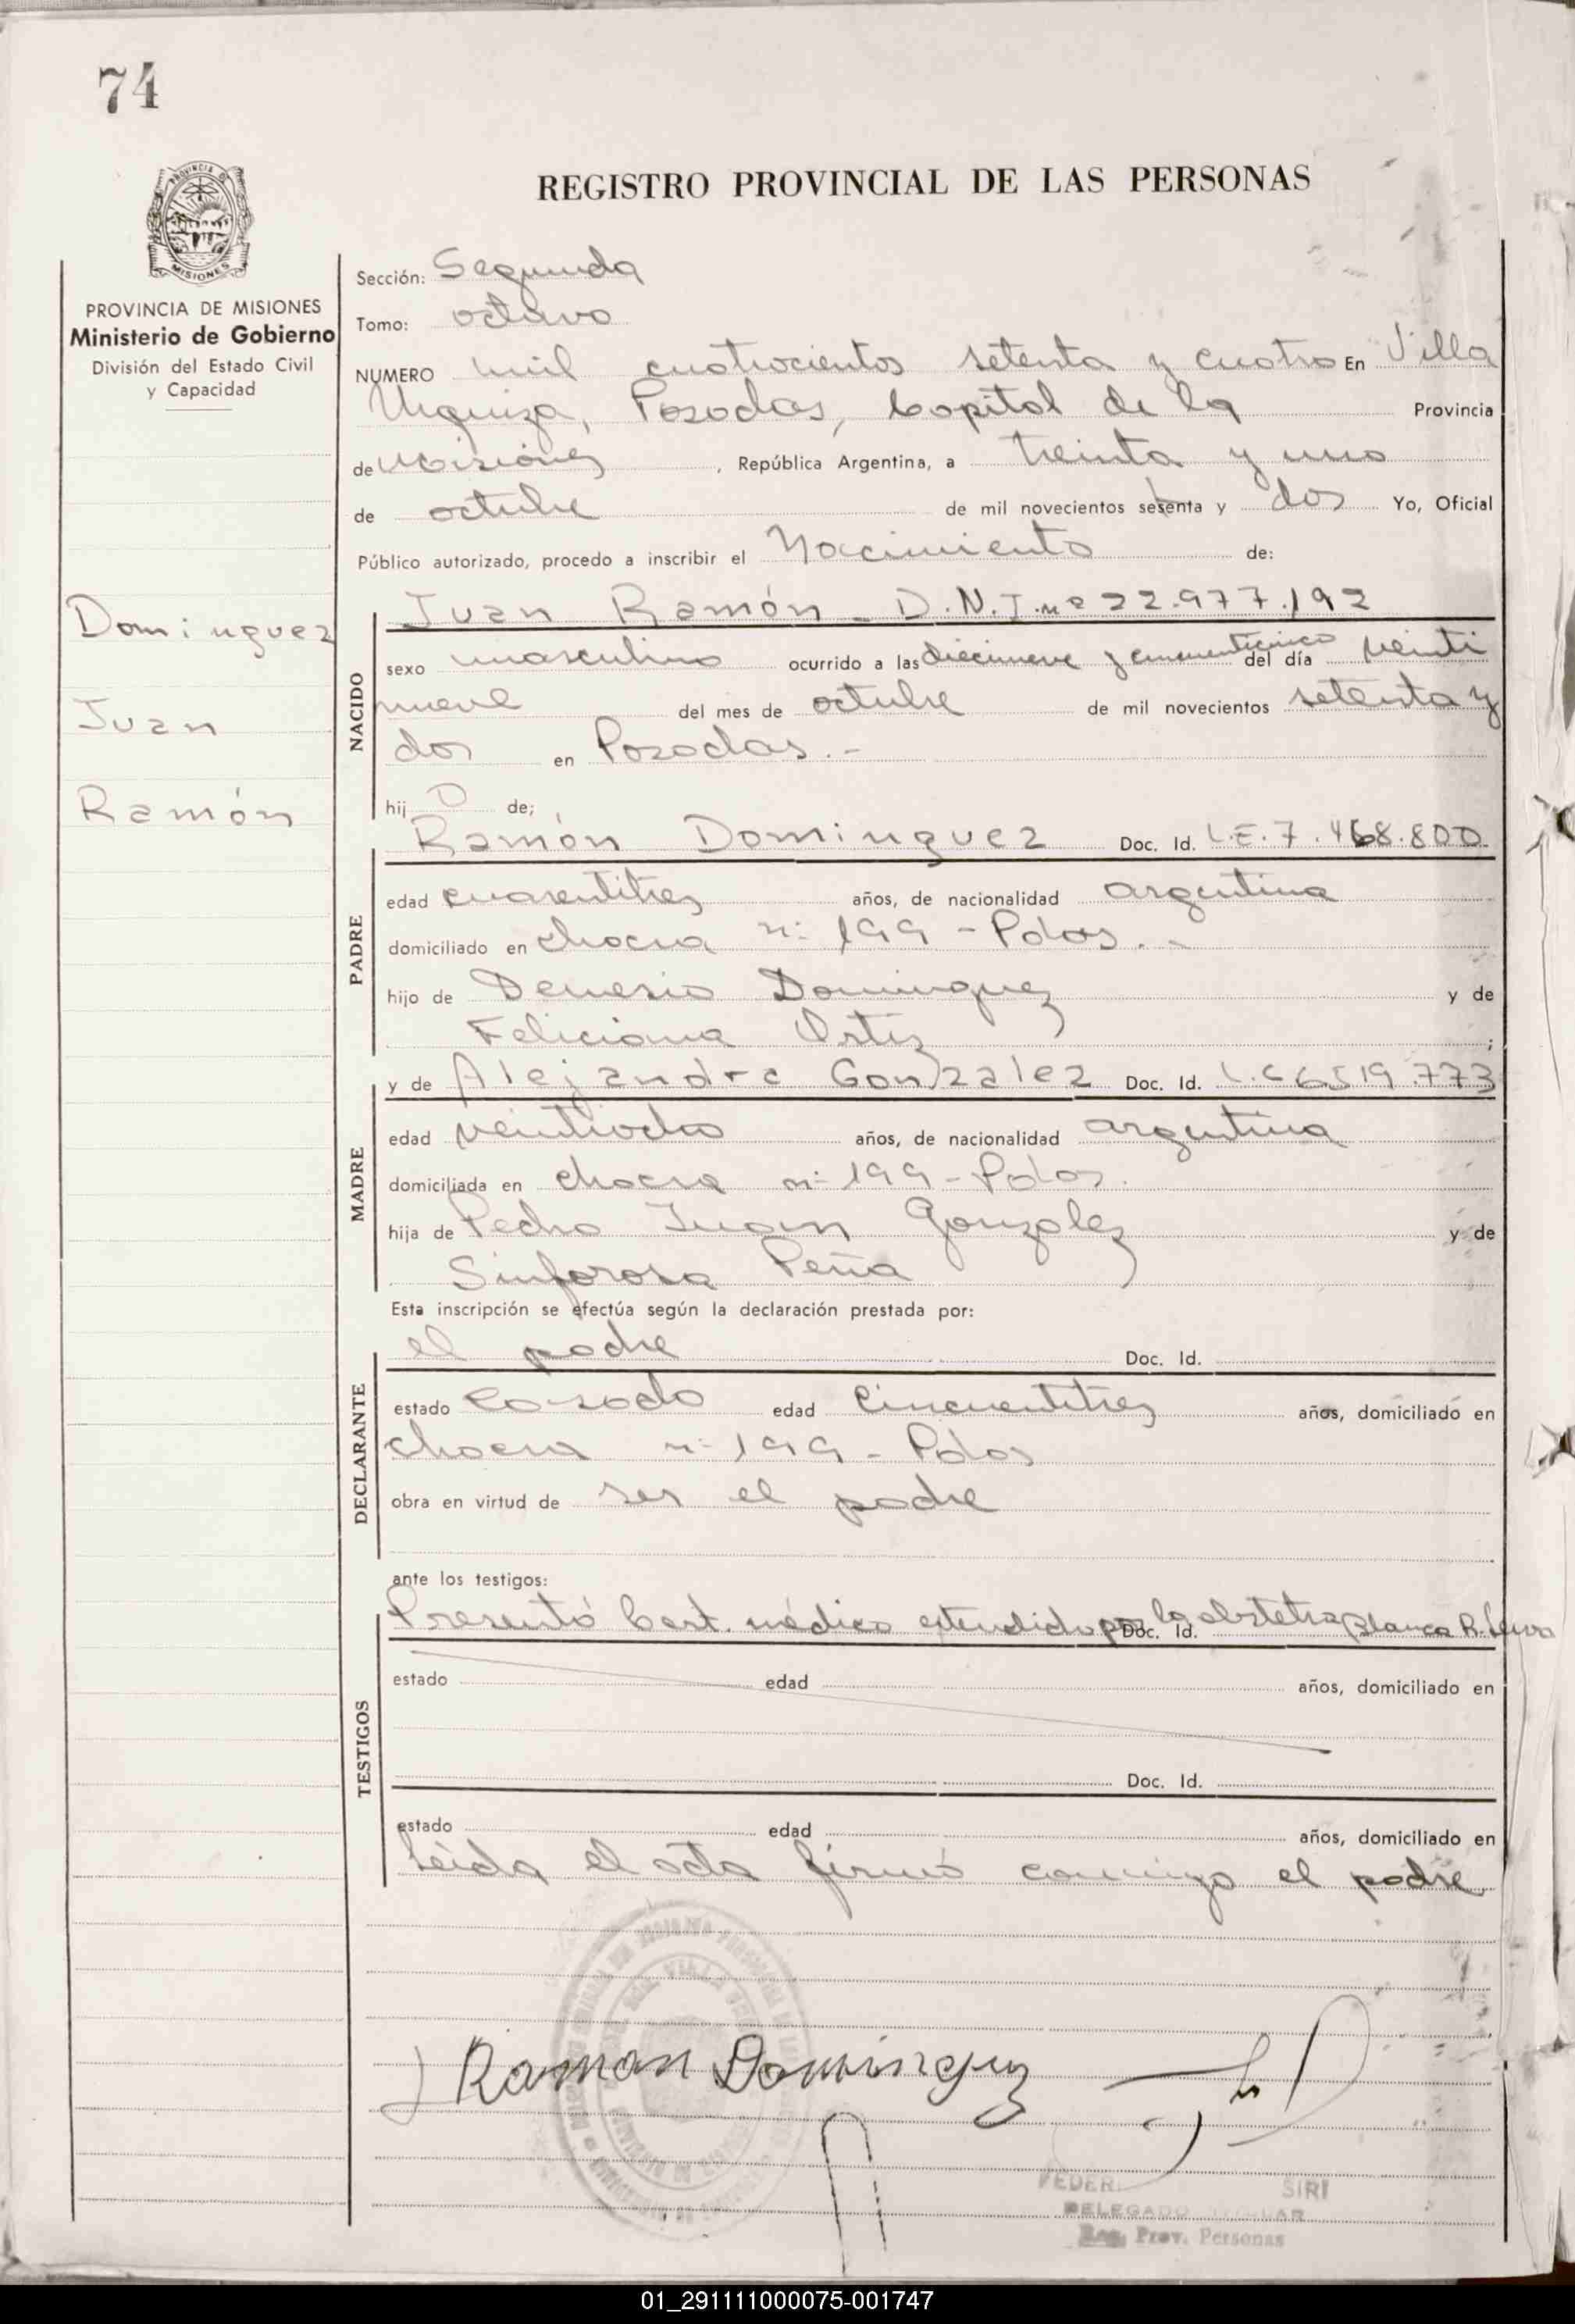 74
REGISTRO PROVINCIAL DE LAS PERSONAS
PROVINCIA DE MISIONES
Ministerio de Gobierno
División del Estado Civil
y Capacidad
Dominguez
Juan
Ramón
Sección: Segunda
Tomo: octavo
NUMERO mil cuatrocientos setenta y cuatro En Villa
Urquiza, Posadas, Capital de la Provincia
de Misiones, República Argentina, a treinta y uno
de octubre de mil novecientos setenta y dos Yo, Oficial
Público autorizado, procedo a inscribir el Nacimiento de:
Juan Ramón - D.N.I. nº 22.977.192
NACIDO
sexo masculino ocurrido a las diecinueve y cincuenticinco del día veinti
nueve del mes de octubre de mil novecientos setenta y
dos en Posadas.-
hij o de;
Ramón Dominguez Doc. Id. L.E. 7.468.800
PADRE
edad cuarentitres años, de nacionalidad argentina
domiciliado en chacra n: 199 - Pdas.-
hijo de Denesio Dominguez y de
Feliciana Ortiz;
y de Alejandra Gonzalez Doc. Id. L.C 6519.773
MADRE
edad veintiocho años, de nacionalidad argentina
domiciliada en chacra n: 199 - Pdas.
hija de Pedro Juan Gonzalez y de
Sinforosa Peña
Esta inscripción se efectúa según la declaración prestada por:
el padre Doc. Id.
DECLARANTE
estado casado edad cincuentitres años, domiciliado en
chacra n: 199 - Pdas
obra en virtud de ser el padre
ante los testigos:
Presentó Cert. médico extendido por la obstetra Blanca R. Doc. Id.
TESTIGOS
estado edad años, domiciliado en
Doc. Id.
estado edad años, domiciliado en
Leida el acta firmó conmigo el padre
Ramon Dominguez
SIRI
DELEGADO
Reg. Prov. Personas
01_291111000075-001747